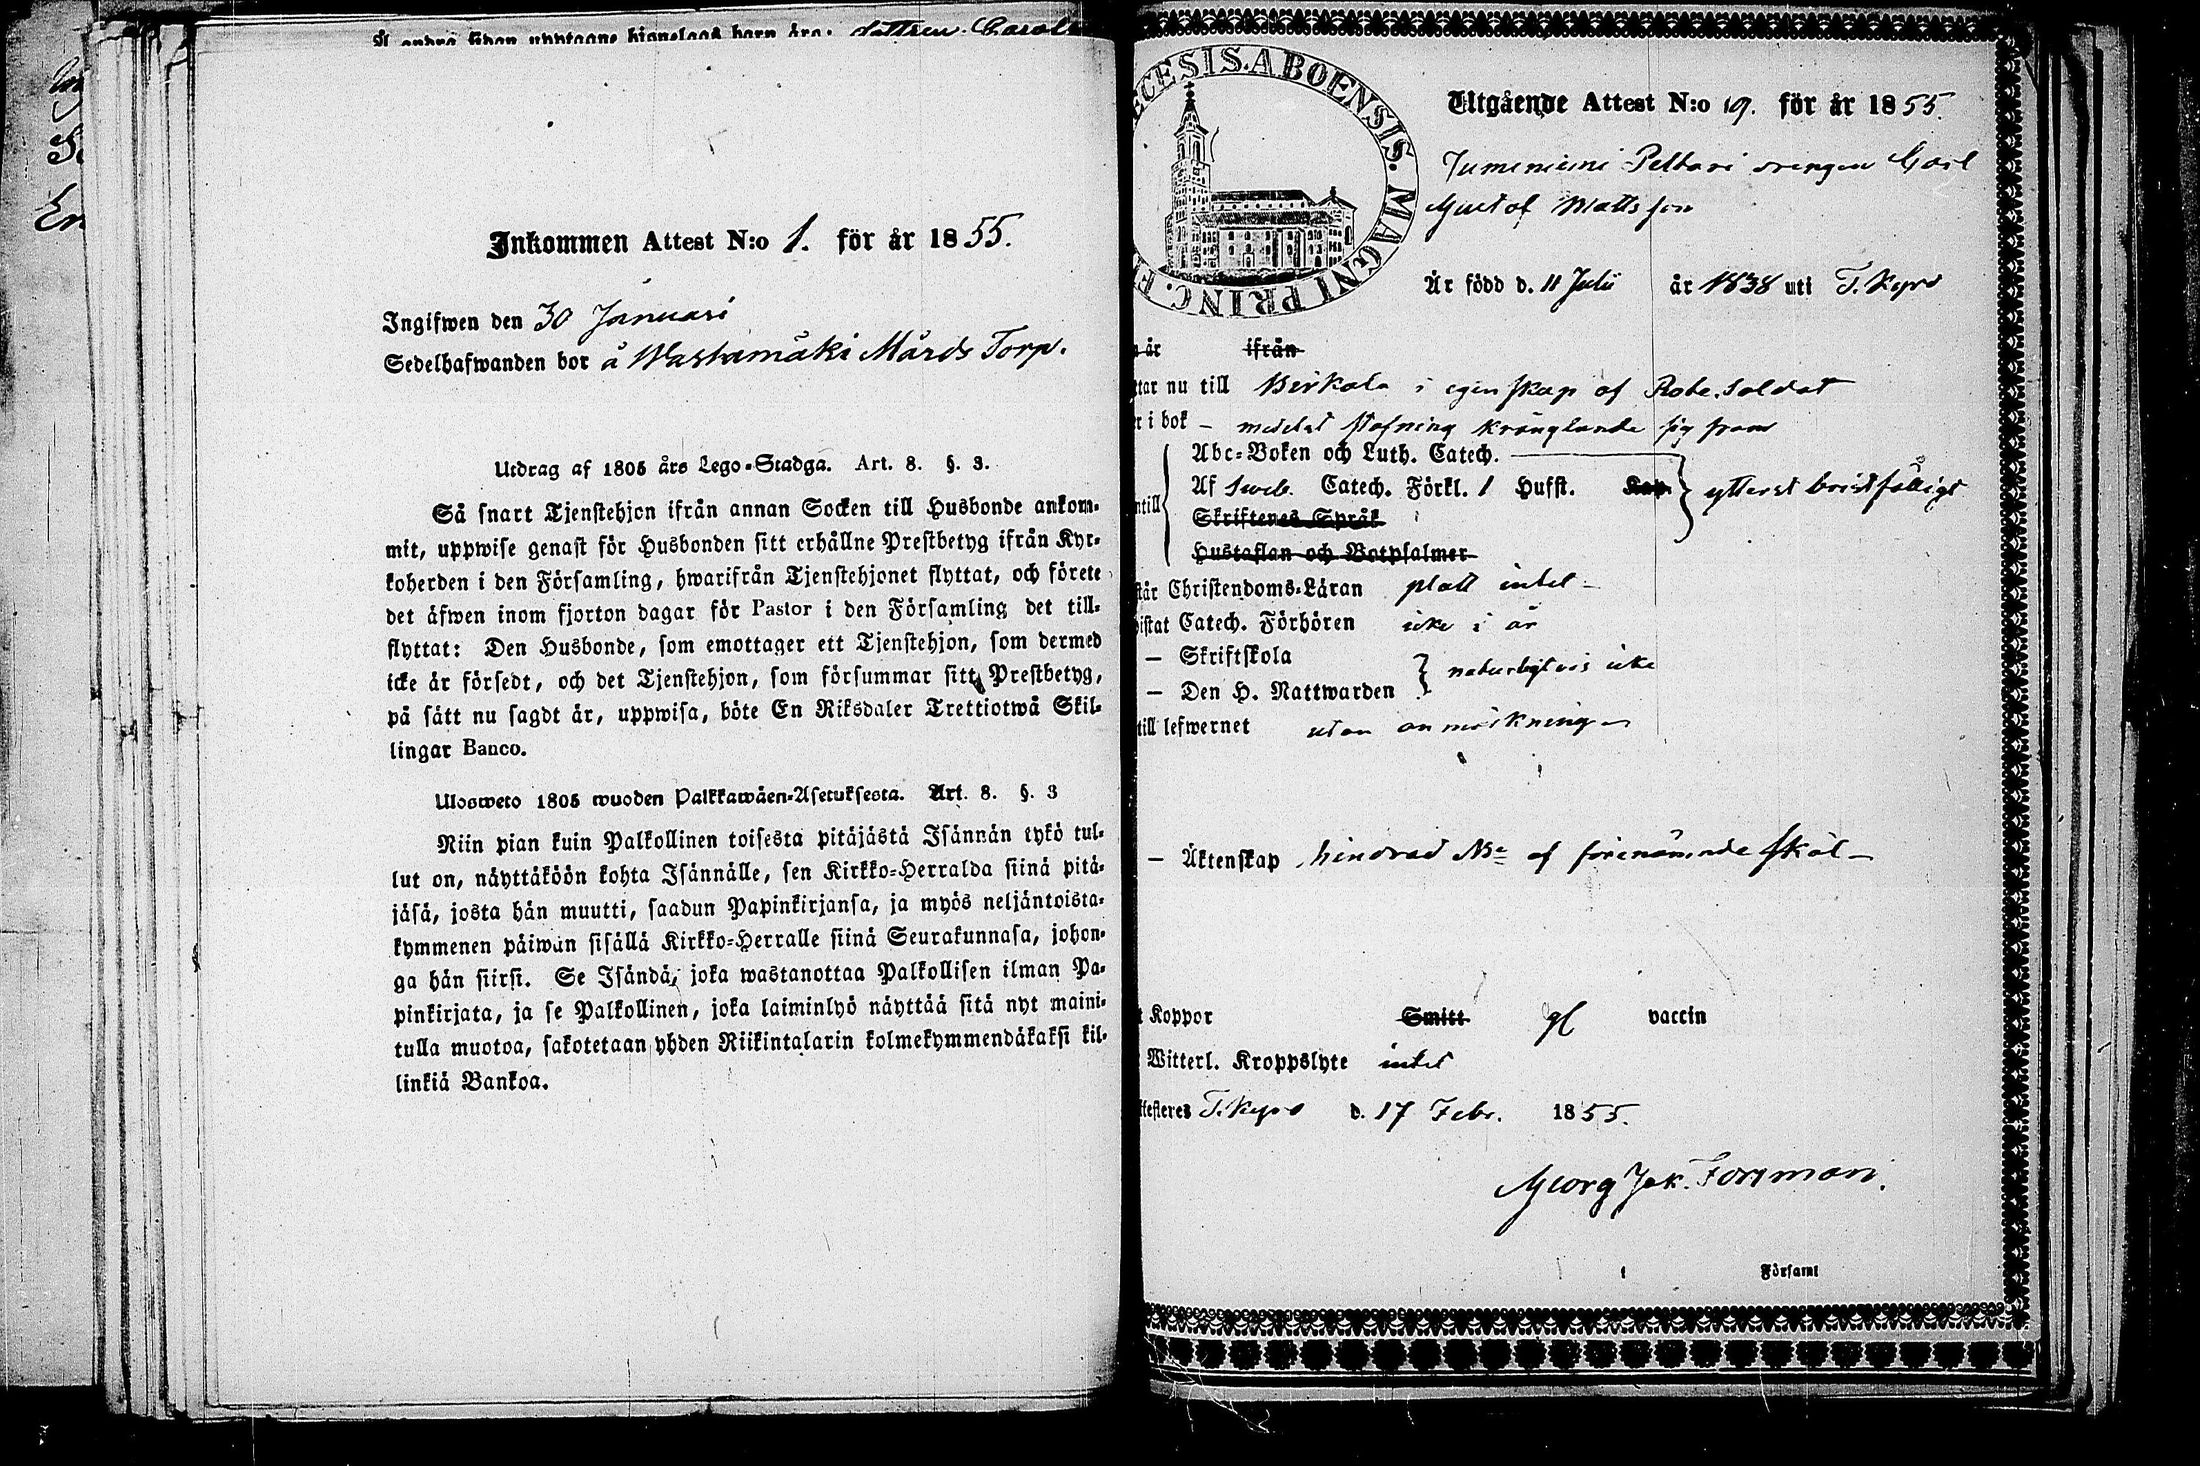 Å andra sidan upptagne hjonelags barn äro: dottren Carol
Inkommen Attest N:o 1. för år 1855.
Ingifwen den 30 Januari
Sedelhafwanden bor å Washamäki Mårds Torp.
Utdrag af 1805 års Lego-Stadga. Art. 8. §. 3.
Så snart Tjenstehjon ifrån annan Socken till Husbonde ankom-
mit, uppwise genast för Husbonden sitt erhållne Prestbetyg ifrån Kyr-
koherden i den Församling, hwarifrån Tjenstehjonet flyttat, och förete
det äfwen inom fjorton dagar för Pastor i den Församling det till-
flyttat: Den Husbonde, som emottager ett Tjenstehjon, som dermed
icke är försedt, och det Tjenstehjon, som försummar sitt Prestbetyg,
på sätt nu sagdt är, uppwisa, böte En Riksdaler Trettiotwå Skil-
lingar Banco.
Ulosweto 1805 wuoden Palkkawäen-Asetuksesta. Art. 8. §. 3
Niin pian kuin Palkollinen toisesta pitäjästä Isännän tykö tul-
lut on, näyttäköön kohta Isännälle, sen Kirkko-Herralda siinä pitä-
jäsä, josta hän muutti, saadun Papinkirjansa, ja myös neljäntoista-
kymmenen päiwän sisällä Kirkko-Herralle siinä Seurakunnasa, johon-
ga hän siirsi. Se Isändä, joka wastanottaa Palkollisen ilman Pa-
pinkirjata, ja se Palkollinen, joka laiminlyö näyttää sitä nyt maini-
tulla muotoa, sakotetaan yhden Riikintalarin kolmekymmendäkaksi kil-
linkiä Bankoa.
ECESIS. ABOENSIS. MAGNI PRINC. F
Utgående Attest N:o 19. för år 1855.
Jumeniemi Peltari drengen Carl
Gustaf Mattsson
Är född d. 11 Julii år 1838 uti T. Kyro
är ifrån
ttar nu till Birkala i egenskap af Rote. Soldat
er i bok – medelst stafning krånglande sig fram
Abc-Boken och Luth. Catech.
ntill Af Sveb. Catech. Förkl. 1 Hufst. Kap. ytterst bristfälligt
Skriftenes Språk
Hustaflan och Botpsalmer
står Christendoms-Läran platt intet –
wistat Catech. Förhören icke i år
– Skriftskola
– Den H. Nattwarden naturligtvis icke
till lefwernet utan anmärkning –
– Äktenskap hindrad af förenämnde skäl –
t Koppor Smitt gl vaccin
Witterl. Kroppslyte intet
ttesteres T. Kyro d. 17 Febr. 1855.
Georg Jak. Forsman.
Församl